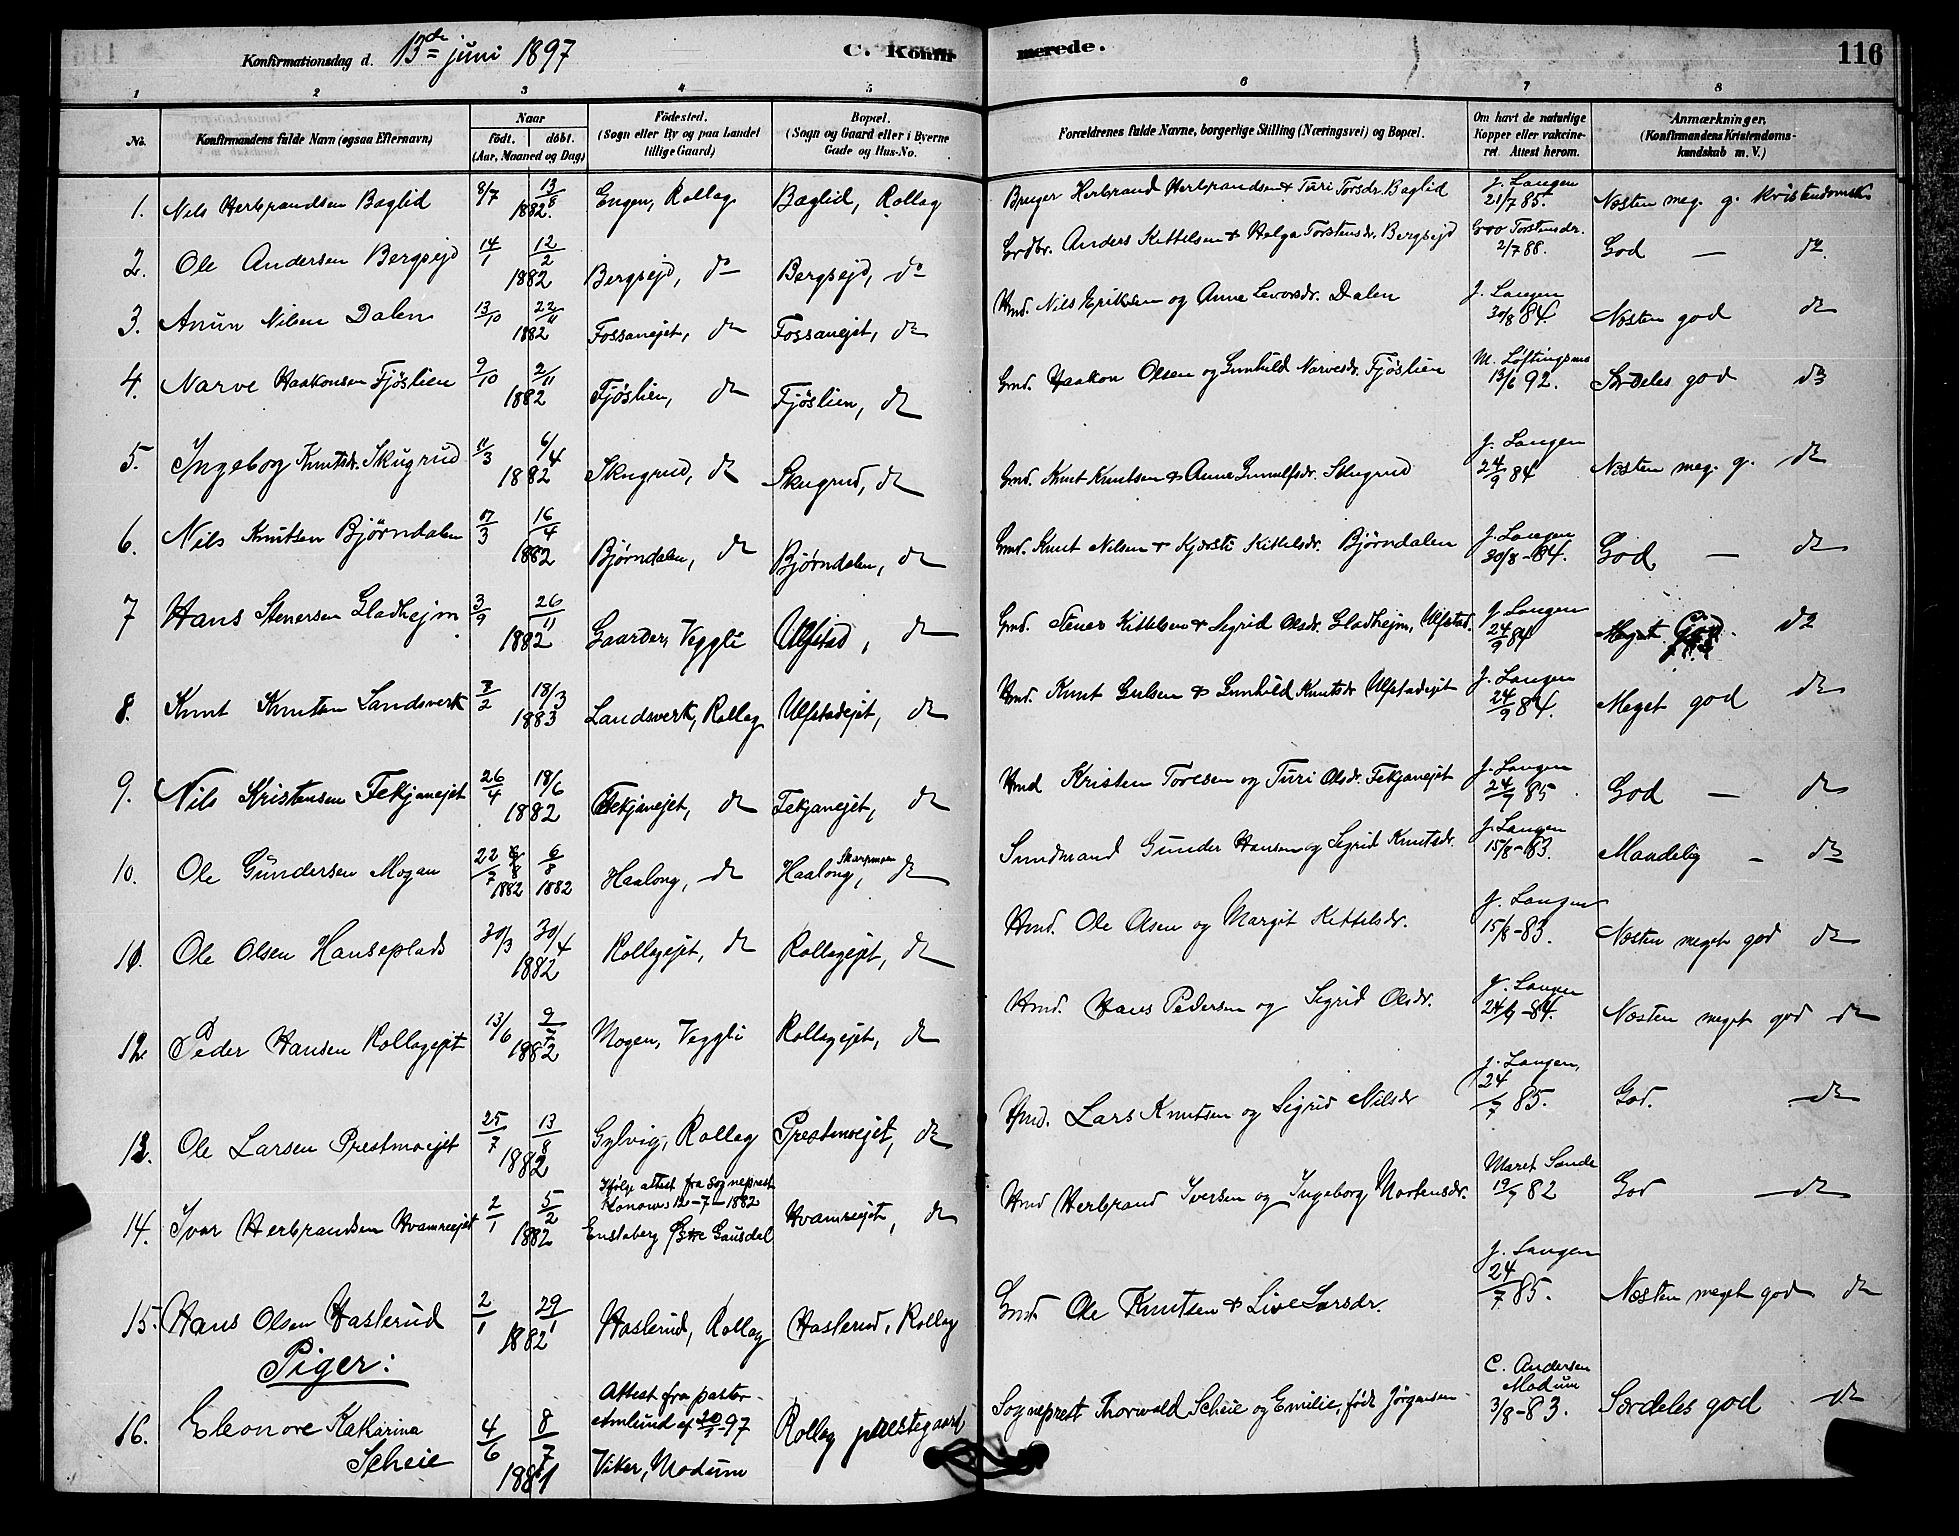 Konfirmationsdag d. 13de juni 1897 C. Konfirmerede. 116
1 2 3 4 5 6 7 8
No. Konfirmandens fulde Navn (ogsaa Efternavn) Naar født. døbt. (Aar, Maaned og Dag) Fødested. (Sogn eller By og paa Landet tillige Gaard) Bopæl. (Sogn og Gaard eller i Byerne Gade og Hus-No. Forældrenes fulde Navne, borgerlige Stilling (Næringsvei) og Bopæl. Om havt de naturlige Kopper eller vakcineret. Attest herom. Anmærkninger, (Konfirmandens Kristendomskundskab m. V.)
1. Nils Herbrandsen Baglid 8/7 13/8 1882. Engen, Rollag Baglid, Rollag Bruger Herbrand Herbrandsen & Turi Torsdr. Baglid J. Langen 21/7 85. Næsten meg. g. Kristendomsk.
2. Ole Andersen Bergsejd 14/1 12/2 1882 Bergsejd, do Bergsejd, do Grdbr. Anders Kittelsen & Helga Torstensdr. Bergsejd Goo Torstensdr. 2/7 88. God — do
3. Anun Nilsen Dalen 13/10 22/11 1882 Fossanejet, do Fossanejet, do Hmd. Nils Eriksen og Anne Levorsdr. Dalen J. Langen 30/8 84. Næsten god do
4. Narve Haakonsen Fjöslien 9/10 2/11 1882 Fjöslien, do Fjöslien, do Gmd. Haakon Olsen og Gunhild Narvesdr. Fjöslien M. Löftingsmo 13/6 92. Særdeles god do
5. Ingeborg Knutsdr. Skugrud 11/3 6/4 1882 Skugrud, do Skugrud, do Gmd. Knut Knutsen & Anne Gunulfsdr. Skugrud J. Langen 24/9 84 Næsten meg. g. do
6. Nils Knutsen Björndalen 17/3 16/4 1882 Björndalen, do Björndalen, do Gmd. Knut Nilsen & Kjersti Kittilsdr. Björndalen J. Langen 30/8 - 84. God — do
7 Hans Stenersen Gladhejm 3/9 26/11 1882 Gaarder, Veggli Ulfstad, do Gmd. Stener Kittelsen & Sigrid Olsdr. Gladhejm, Ulfstad. J. Langen 24/9 84 Meget do
8. Knut Knutsen Landsverk 7/2 18/3 1883 Landsverk, Rollag Ulfstadejet, do Hmd. Knut Gulsen & Gunhild Knutsdr Ulfstadejet J. Langen 24/9 84. Meget god do
9. Nils Kristensen Fekjanejet 26/4 18/6 1882 Fekjanejet, do Fekjanejet, do Hmd Kristen Toresen og Turi Olsdr. Fekjanejet J. Langen 24/7 85 God — do
10. Ole Gundersen Mogan 22/7 1882 6/8 1882 Haalong, do Haalong, do Sundmand Gunder Hansen og Sigrid Knutsdr. J. Langen 15/8 - 83. Maadelig — do
11. Ole Olsen Hanseplads 30/3 30/4 1882 Rollagejet, do Rollagejet, do Hmd. Ole Olsen og Margit Kittelsdr. J. Langen 15/8 - 83. Næsten meget god do
12. Peder Hansen Rollagejet 13/6 9/7 1882 Mogen, Veggli Rollagejet, do Hmd. Hans Pedersen og Sigrid Olsdr. J. Langen 24/9 - 84. Næsten meget god do
13. Ole Larsen Prestmoejet 25/7 13/8 1882 Gylvig, Rollag Prestmoejet, do Hmd. Lars Knutsen og Sigrid Nilsdr J. Langen, 24/7 85. God. do
14. Ivar Herbrandsen Hvamreejet 2/1 5/2 1882 Ifölge attest fra sogneprest Konow 12-7-1882 Enstaberg Östre Gausdal Hvamreejet, do Hmd Herbrand Iversen og Ingeborg Mortensdr. Maret Sande 19/9 82 God do
15. Hans Olsen Haslerud 2/1 29/1 1882 Haslerud, Rollag Haslerud, Rollag Gmd. Ole Knutsen & Live Larsdr. J. Langen 24/7 85. Næsten meget god do
Piger:
16. Eleonore Katharina Scheie 4/6 8/7 1881 Attest fra pastor Amlund af 97 Viker, Modum Rollag prestegaard Sogneprest Thorwald Scheie og Emilie, född Jörgensen C. Andersen Modum 3/8 - 83. Særdeles god do